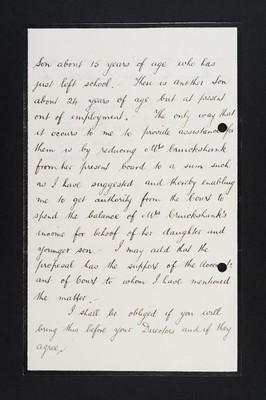 son about 15 years of age who has
just left school. - There is another son
about 24 years of age but at present
out of employment. - The only way that
it occurs to me to provide assistance for
them is by reducing Mrs Cruickshank
from her present board to a sum such
as I have suggested and thereby enabling
me to get authority from the Court to
spend the balance of Mrs Cruickshank's
income for behoof of her daughter and
younger son. - I may add that the
proposal has the support of the Account-
ant of Court to whom I have mentioned
the matter. -
I shall be obliged if you will
bring this before your Directors and if they
agree, -